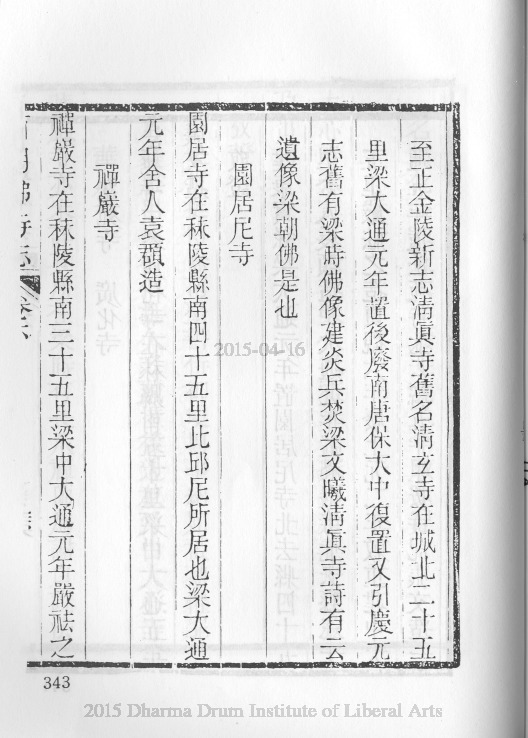 至正金陵新志清眞寺舊名清玄寺在城北二十五
里梁大通元年置後廢南唐保大中復置又引慶元
志舊有梁時佛像建炎兵焚梁文曦清眞寺詩有云
遺像梁朝佛是也
園居尼寺
園居寺在秣陵縣南四十五里比邱尼所居也梁大通
元年舍人袁顒造
禪巖寺
禪巖寺在秣陵縣南三十五里梁中大通元年嚴祛之
343
2015-04-16
2015 Dharma Drum Institute of Liberal Arts